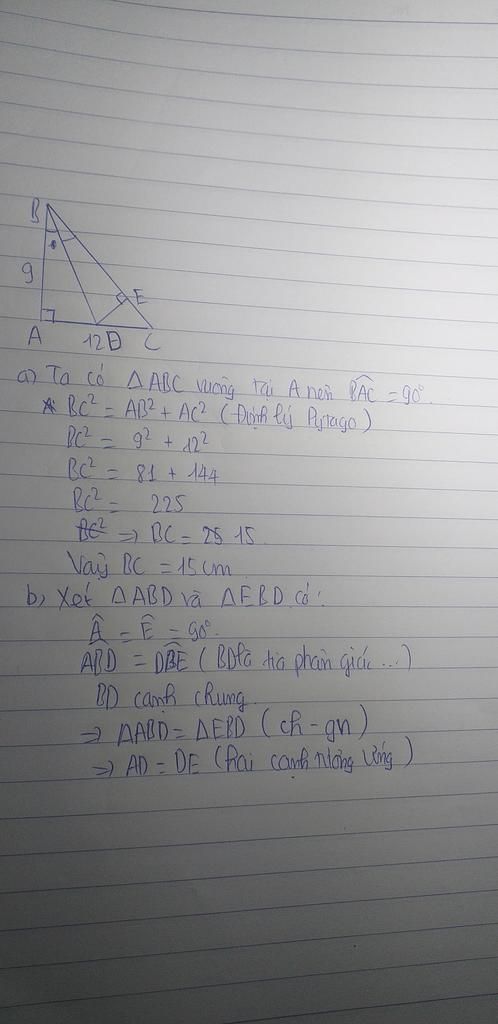 B
9
E
A
12
D
C
a) Ta có ΔABC vuông tại A nên BAC = 90°.
BC² = AB² + AC² (Định lý Pytago)
BC² = 9² + 12²
BC² = 81 + 144
BC² = 225
BC² => BC = 25 15
Vậy BC = 15cm
b, Xét ΔABD và ΔEBD có:
Â = Ê = 90°.
ABD = DBE (BD là tia phân giác ...)
BD cạnh chung
=> ΔABD = ΔEBD (ch - gn)
=> AD = DE (hai cạnh tương ứng)